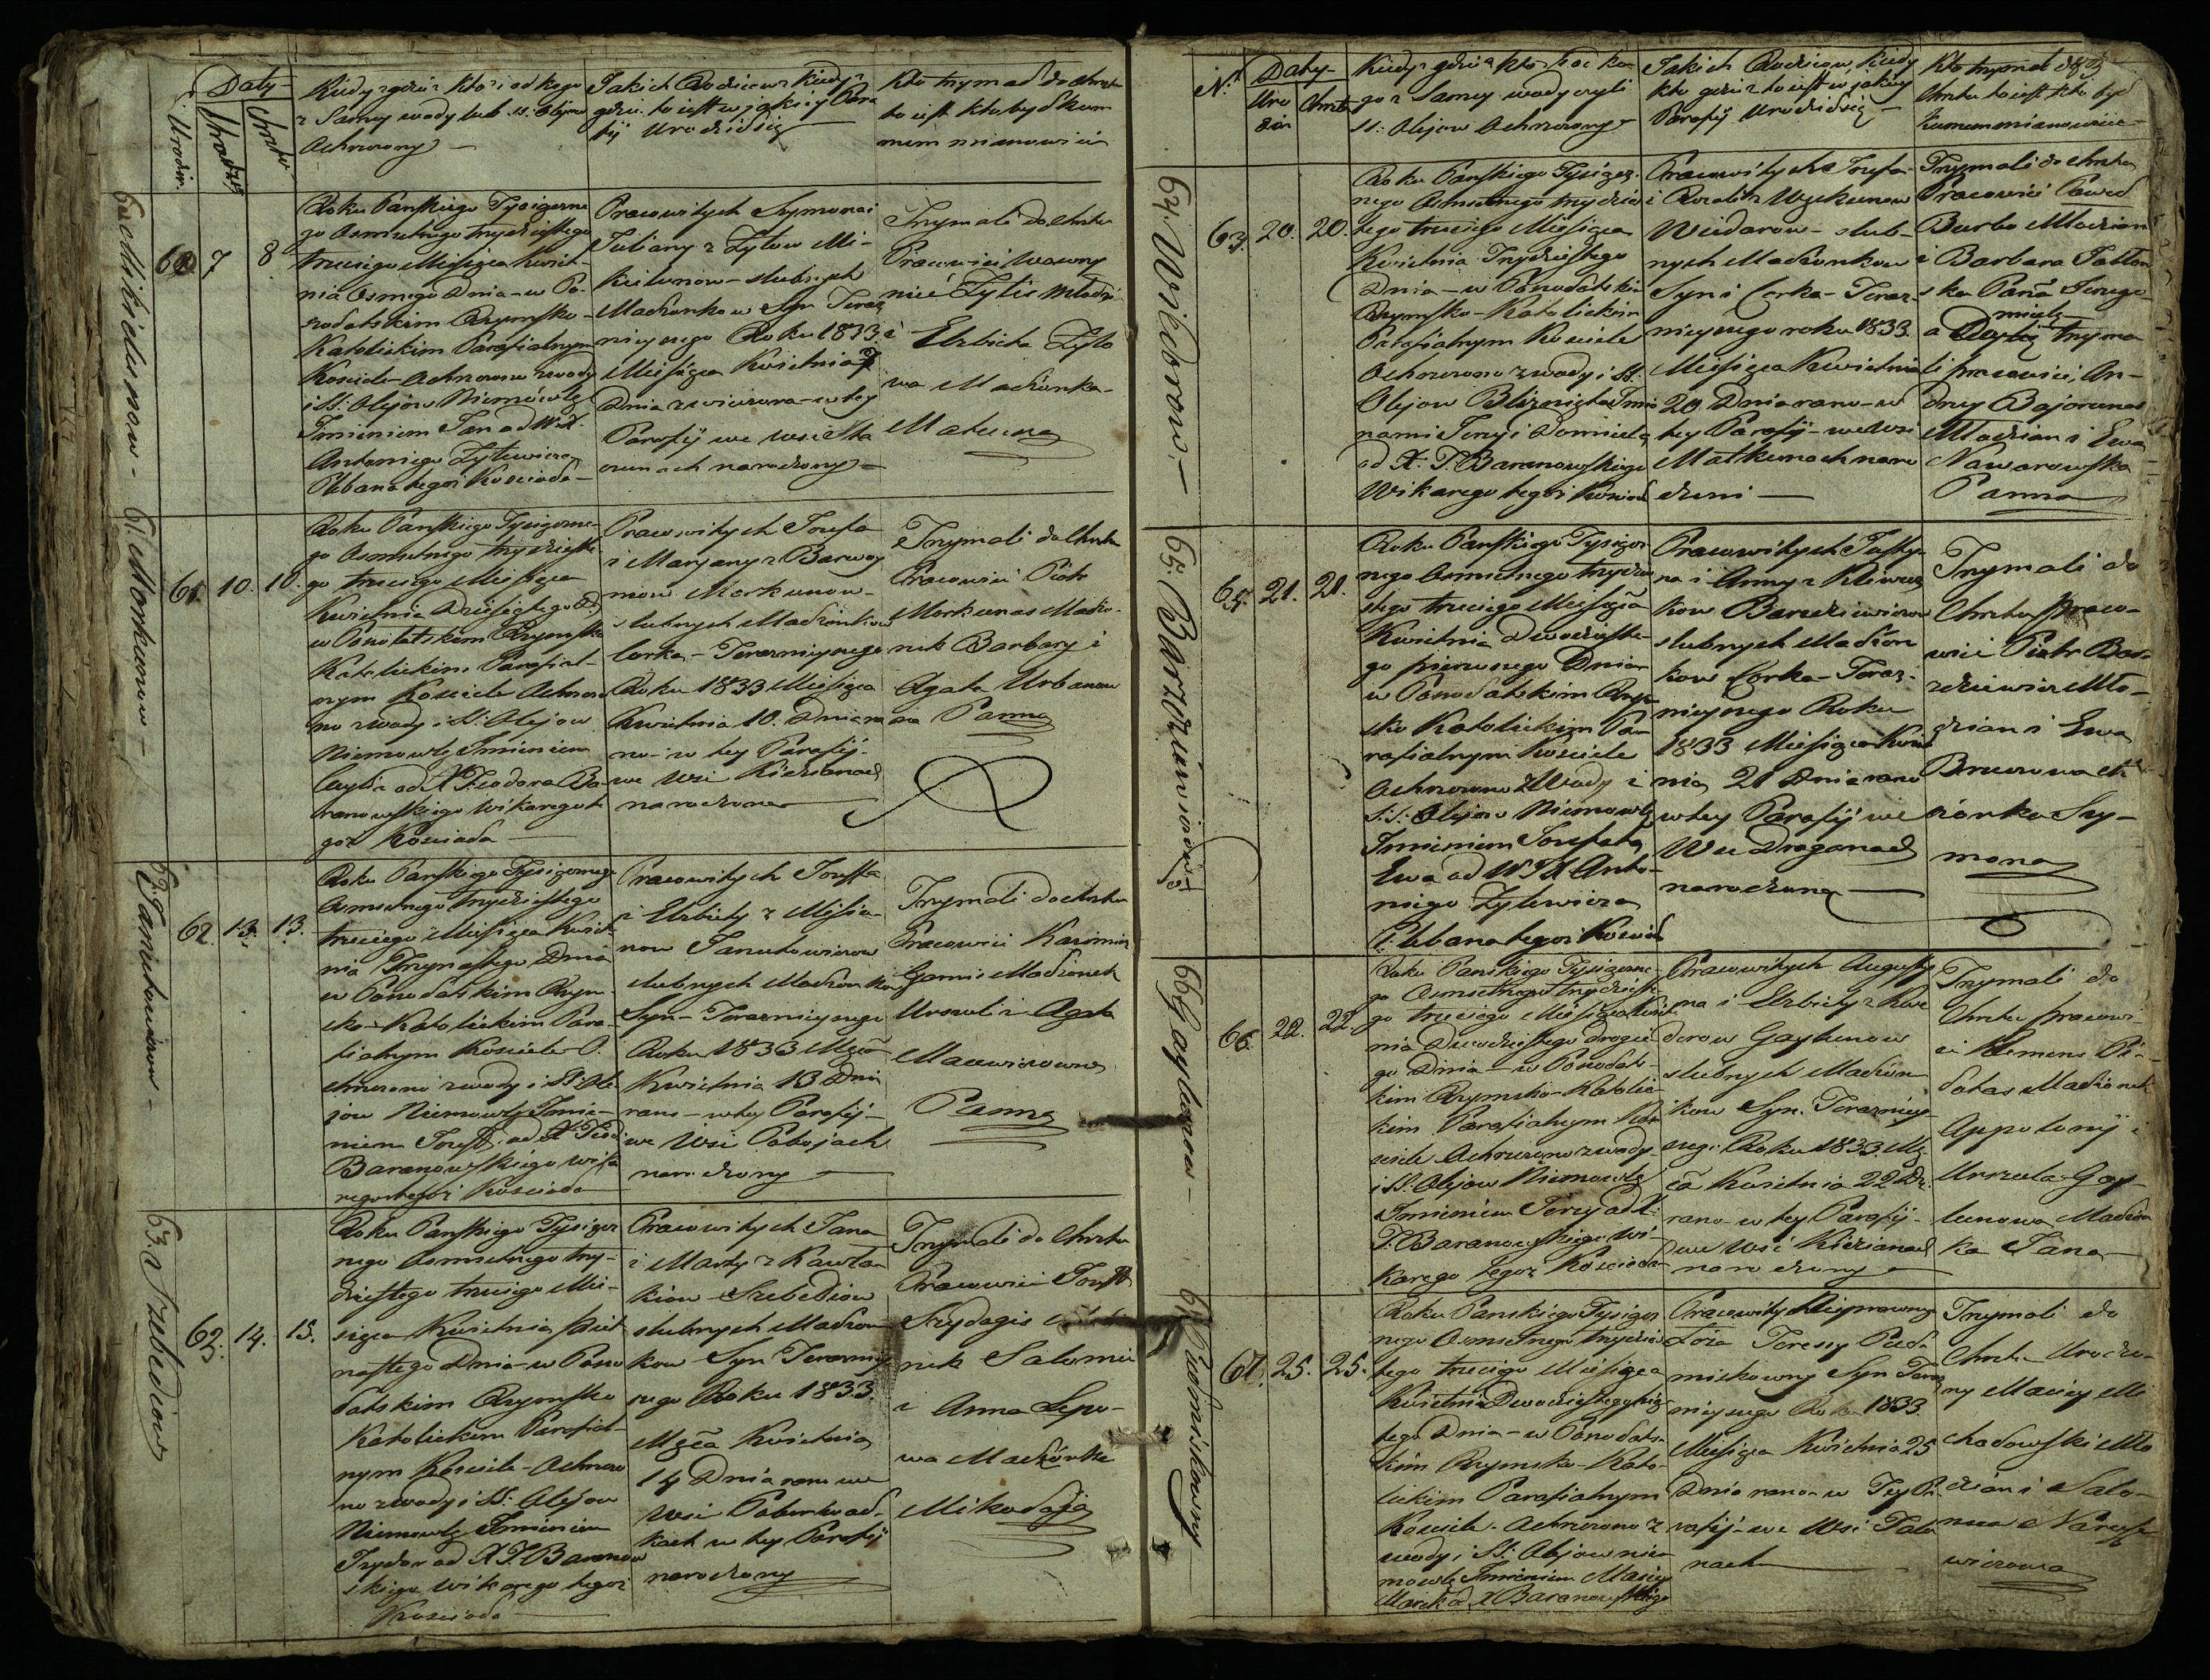 Daty
Urodzin
Chrztu
Kiedy, gdzie, kto i od kogo
z Samey wody lub SS. Olejow
Ochrzczony
Jakich Rodzicow kiedy i
gdzie to iest w jakiey Para
fij urodził się
Kto trzymał do Chrztu
to iest kto był kum
mem mianowicie
60. Mikielunow
60 7 8
Roku Panskiego Tysiączne
go Osmsetnego trzydziestego
trzeciego Miesiąca Kwiet
nia Osmego Dnia w Po
Katolickim Parafialnym
Kosciele Ochrzczono z wody
i SS. Olejow Niemowlę
Imieniem Jan od W. X.
Antoniego Zylewicza
Plebana tegoż Koscioła
Pracowitych Szymona i
Juliany z Zylow Mi-
kielunow slubnych
Małzonkow Syn Teraz
nieyszego Roku 1833
Miesiąca Kwietnia 7
Dnia z wieczora w tey
Parafij we wsi
narodzony
Trzymali do Chrztu
Pracowici Wawrzy
niec Zylis Młodzi
i Elzbieta Zylo
wa Małzonka
Mateusza
61. Morkunow
61. 10. 10.
Roku Panskiego Tysiączne
go Osmsetnego trzydzieste
go trzeciego Miesiąca
Kwietnia Dziesiątego D.
w Ponotalskim Rzymsko
Katolickim Parafial-
nym Kosciele Ochrzczo
no z wody i SS. Olejow
Niemowlę Imieniem
od X Teodora Ba
ranowskiego Wikarego te
goż Kosciola
Pracowitych Jozefa
i Maryany z Barwoy
now Morkunow
slubnych Małzonkow
Corka Teraznieyszego
Roku 1833 Miesiąca
Kwietnia 10. Dnia ra
no w tey Parafij
we Wsi Kiezianach
narodzona
Trzymali do Chrztu
Pracowici Piotr
Morkunas Małzo-
nek Barbary i
Agata Urbanow
na Panna
62. Janutowiczow
62. 13. 13.
Roku Panskiego Tysiącznego
Osmsetnego trzydziestego
trzeciego Miesiąca Kwiet
nia Trzynastego Dnia
w Ponodalskim Rzym
sko Katolickim Para
fialnym Kosciele O
chrzczono z wody i SS. Ole
jow Niemowlę Imie
niem Jozef od X Teod.
Baranowskiego Wika
rego tegoż Kosciola
Pracowitych Jozefa
i Elzbiety z Misiu
now Janutowiczow
slubnych Małzonkow
Syn Teraznieyszego
Roku 1833 Msca
Kwietnia 13 Dnia
rano w tey Parafij
we Wsi Pobojach
narodzony
Trzymali do Chrztu
Pracowici Kazimirz
Małzonek
Urszuli i Agata
Macewiczowna
Panna
63. Szebediow
63. 14. 15.
Roku Panskiego Tysiącz
nego Osmsetnego trzy-
dziestego trzeciego Mie-
siąca Kwietnia piet
nastego Dnia w Pono
dalskim Rzymsko
Katolickim Parafial-
nym Kosciele Ochrzczo
no z wody i SS. Olejow
Niemowlę Imieniem
Izydor od X T. Baranow
skiego Wikarego tegoż
Kosciola
Pracowitych Jana
i Marty z Kawla
kiow Szebediow
slubnych Małzon
kow Syn Teraznie
szego Roku 1833.
Msca Kwietnia
14 Dnia rano we
Wsi
w tey Parafij
narodzony
Trzymali do Chrztu
Pracowici Jozef
nek Salomii
i Anna
wa Małzonka
Mikołaja
N.
Daty
Uro
dzin
Chrztu
Kiedy, gdzie, kto i od ko
go z Samey wody czyli
SS. Olejow Ochrzczony
Jakich Rodzicow, kiedy
kto gdzie to iest w jakiey
Parafij Urodził się
Kto trzymał do
Chrztu to iest kto był
Kumem mianowicie
64. Widorow
63. 20. 20.
Roku Panskiego Tysiącz
nego Osmsetnego trzydzies
tego trzeciego Miesiąca
Kwietnia Trzydziestego
Dnia w Ponodalskim
Rzymsko Katolickim
Parafialnym Kosciele
Ochrzczono z wody i SS.
Olejow Bliznięta Imio
nami Jerzy i Domicela
od X. T. Baranowskiego
Wikarego tegoż Kosciola
Pracowitych Jozefa
i Rozalii z Wyckunow
Widorow slub-
nych Małzonkow
Syn i Corka Teraz-
nieyszego roku 1833.
Miesiąca Kwietnia
20 Dnia rano w
tey Parafij we Wsi
Matkunach naro
dzeni
Trzymali do Chrztu
Pracowici Paweł
Burba Młodzian
i Barbara Jablon
ska Panna Jerzego
a trzyma
li pracowici An-
drzey Bajorunas
Młodzian i Ewa
Nawarowska
Panna
65. Bordziewiczow
65. 21. 21.
Roku Panskiego Tysiącz
nego Osmsetnego trzydzie
stego trzeciego Miesiąca
Kwietnia Dwudzieste
go pierwszego Dnia
w Ponodalskim Rzym
sko Katolickim Pa
rafialnym Kosciele
Ochrzczono z Wody i
S.S. Olejow Niemowlę
Imieniem Jozefata
Ewa od W JX Anto-
niego Zylewicza
Plebana tegoż Kosciola
Pracowitych Justy
na i Anny z
slubnych Małzon
kow Corka Teraz-
nieyszego Roku
1833 Miesiąca Kwiet
nia 21 Dnia rano
w tey Parafij we
Wsi Draganach
narodzona
Trzymali do
Chrztu Praco-
wici Piotr Bor-
dziewicz Mło-
dzian i Ewa
zonka Szy-
mona
66. Gaylunow
66. 22. 22.
Roku Panskiego Tysiączne
go Osmsetnego trzydzieste
go trzeciego Miesiąca Kwiet
nia Dwudziestego drugie
go Dnia w Ponodals
kim Rzymsko Katolic
kim Parafialnym Ko
sciele Ochrzczono z wody
i SS. Olejow Niemowlę
Imieniem Jerzy od X.
T. Baranowskiego Wi-
karego tegoż Kosciola
Pracowitych Augusty
na i Elzbiety z
Gaylunow
slubnych Małzon
kow Syn. Terazniey
szego Roku 1833. M
ca Kwietnia 22 Dn.
rano w tey Parafij
we Wsi Kiezianach
narodzony
Trzymali do
Chrztu pracowi
ci Klemens Pi
Małzonek
Appolonij i
Urszula Gay-
lunowa Małzon
ka Jana
67. Pudzmiskowny
67. 25. 25.
Roku Panskiego Tysiącz
nego Osmsetnego trzydzies
tego trzeciego Miesiąca
Kwietnia Dwudziestego pią
tego Dnia w Ponodals
kim Rzymsko Kato-
lickim Parafialnym
Kosciele Ochrzczono z
wody i SS. Olejow nie
mowlę Imieniem Maciey
Marek od X Baranowskiego
Pracowitey Nieprawego
Łoża Teressy
miskowny Syn Teraz
nieyszego Roku 1833
Miesiąca Kwietnia 25
Dnia rano w Tey Pa
rafij we Wsi
nach
Trzymali do
Chrztu Urodzo-
ny Maciey Mi
chałowski Mło
dzian i Salo-
mea
wiczowa